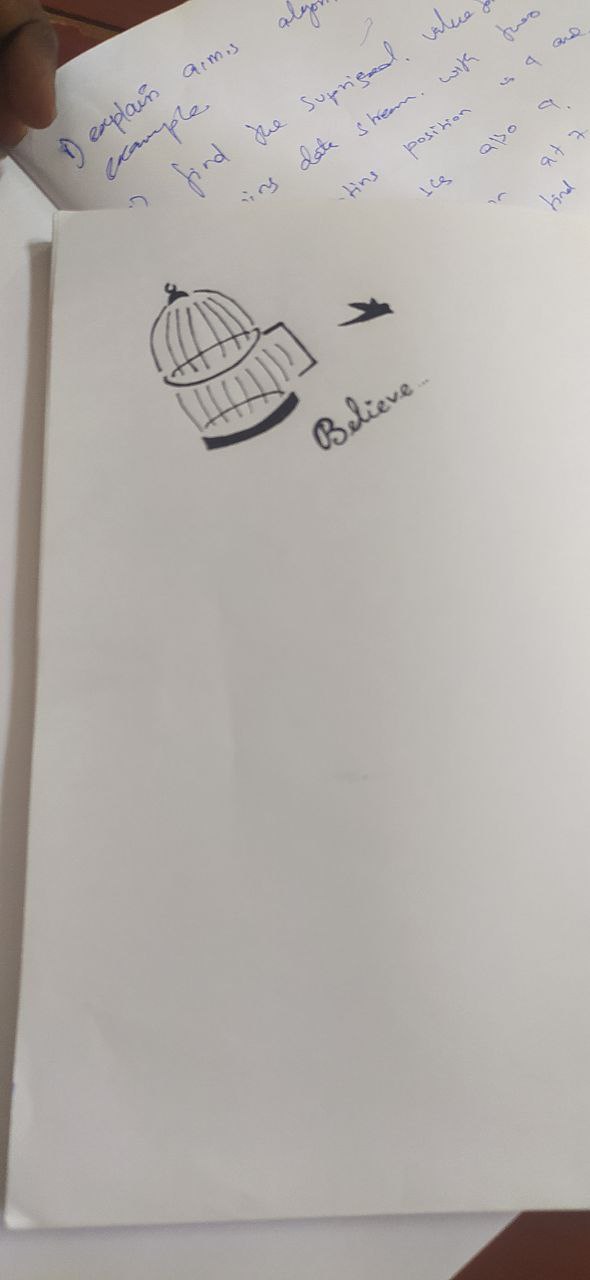 1) explain a.m.s
example
find the suprised. value
data stream. with two
position is 9 are
also 9.
at 7
find
Believe...